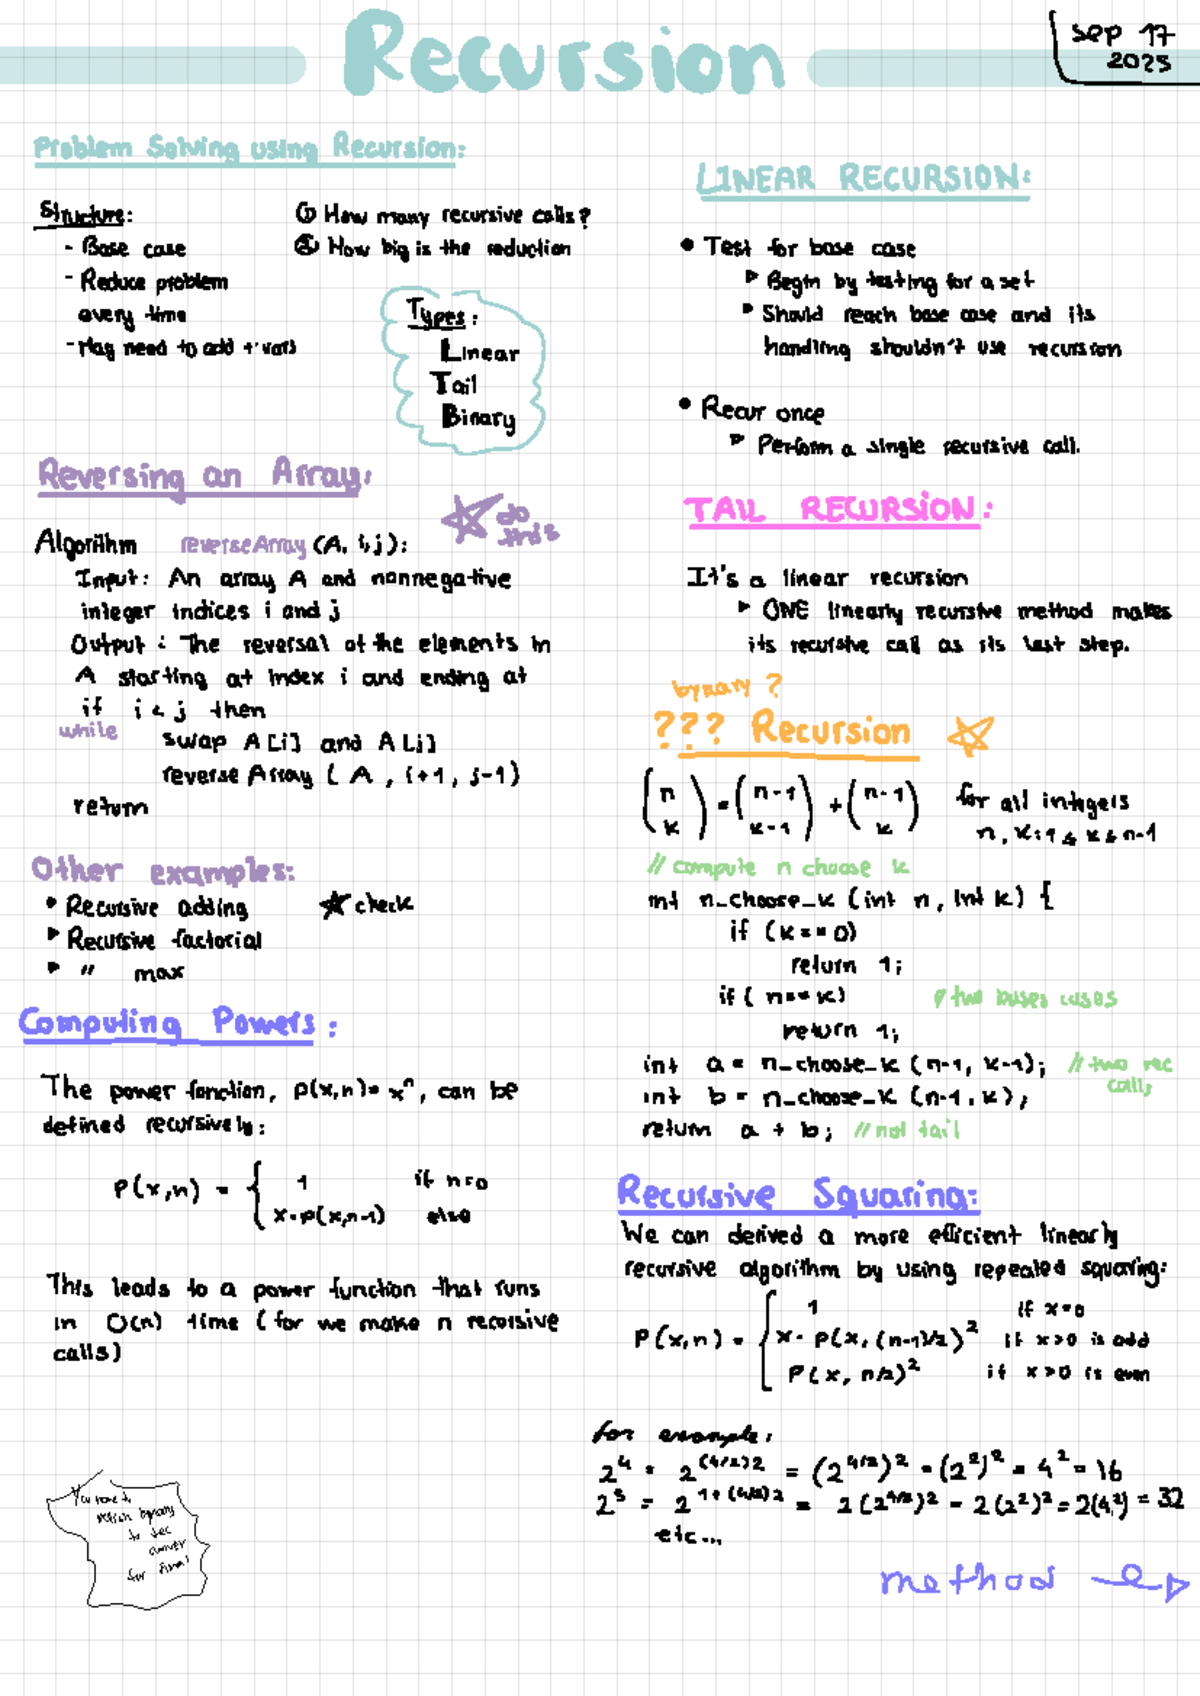 Recursion
Sep 17
2025
Problem Solving using Recursion:
Structure:
- Base case
- Reduce problem
every time
- May need to add + vars
① How many recursive calls?
② How big is the reduction
Types:
Linear
Tail
Binary
Reversing an Array:
do this
Algorithm reverseArray (A, i,j):
Input: An array A and nonnegative
integer indices i and j
Output: The reversal of the elements in
A starting at index i and ending at
if i < j then
while
swap A[i] and A[j]
reverse Array ( A , i+1, j-1)
return
Other examples:
Recursive adding
★ check
Recursive factorial
" max
Computing Powers:
The power fonction, p(x,n)= xⁿ, can be
defined recursively:
P(x,n) = { 1 if n=0
x·p(x,n-1) else
This leads to a power function that runs
in O(n) time (for we make n recorsive
calls)
for final
LINEAR RECURSION:
• Test for base case
Begin by testing for a set
Should reach base case and its
handling shouldn't use recursion
• Recur once
Perform a single recursive call.
TAIL RECURSION:
It's a linear recursion
ONE linearly recursive method makes
its recursive call as its last step.
bynary ?
??? Recursion
(n k) = (n-1 k-1) + (n-1 k) for all integers
n, k: 1 ≤ k ≤ n-1
// compute n choose k
int n_choose_k (int n, int k) {
if (k == 0)
return 1;
if ( n == k) // two bases cases
return 1;
int a = n_choose_k (n-1, k-1); // two rec
calls
int b = n_choose_k (n-1, k);
return a + b; // not tail
Recursive Squaring:
We can derived a more efficient linearly
recursive algorithm by using repeated squaring:
P(x,n) = { 1 if x=0
x· p(x, (n-1)/2)² if x>0 is odd
P(x, n/2)² if x>0 is even
for example:
2⁴ = 2^(4/2)2 = (2^4/2)² = (2²)² = 4² = 16
2⁵ = 2^1+(4/2)2 = 2(2^4/2)² = 2(2²)² = 2(4²) = 32
etc...
method